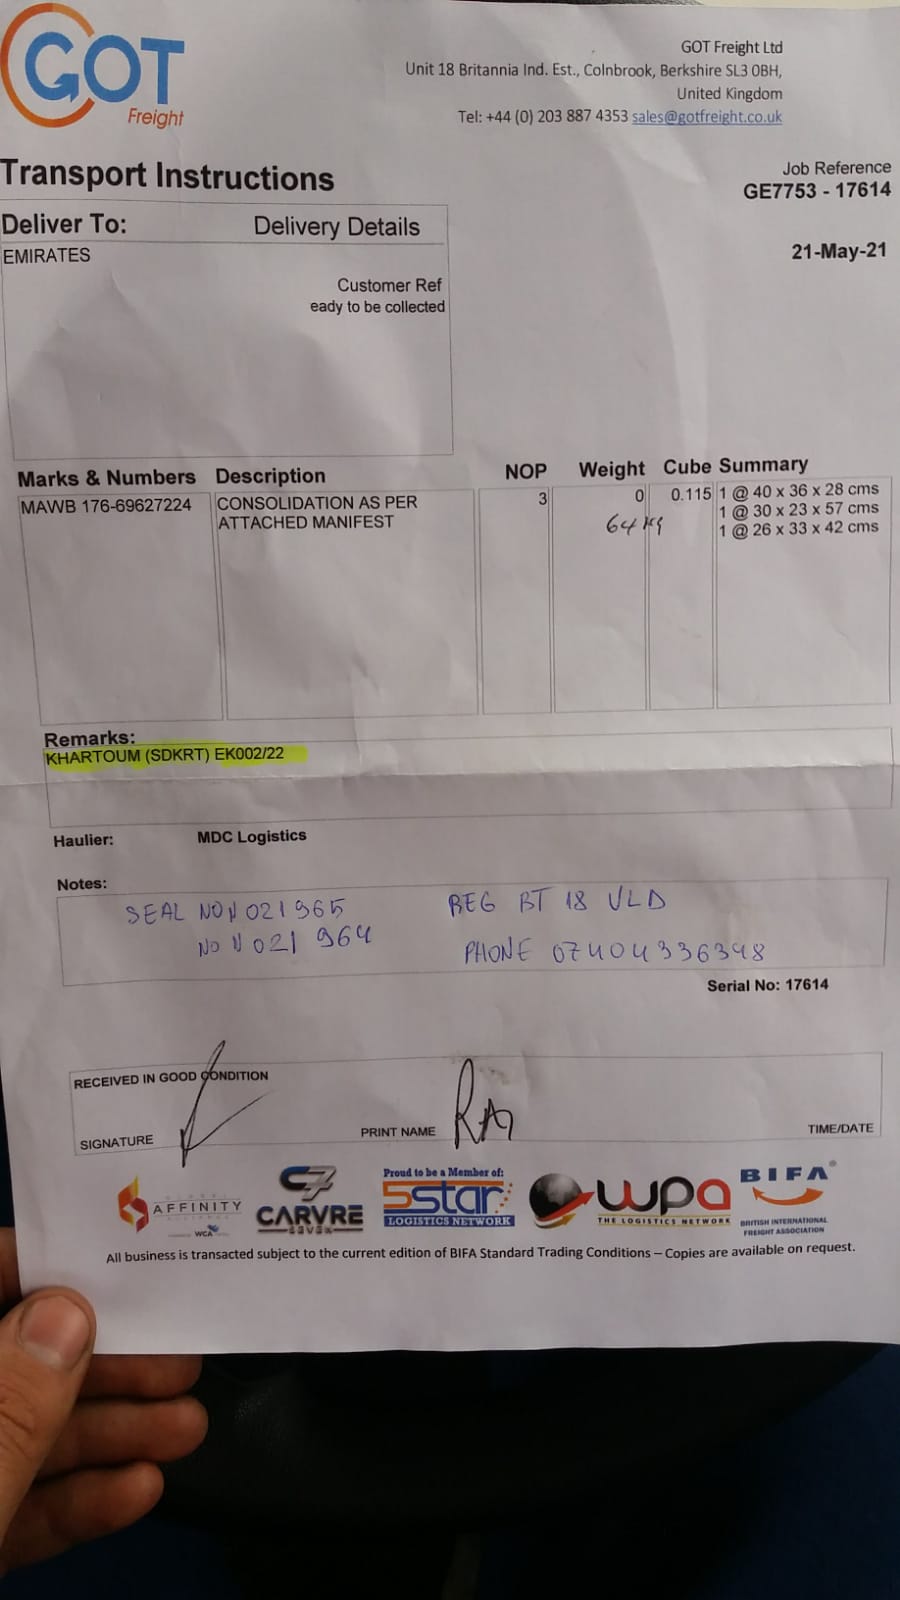 GOT
Freight
GOT Freight Ltd
Unit 18 Britannia Ind. Est., Colnbrook, Berkshire SL3 0BH,
United Kingdom
Tel: +44 (0) 203 887 4353 sales@gotfreight.co.uk
Transport Instructions
Job Reference
GE7753 - 17614
Deliver To: Delivery Details
EMIRATES
21-May-21
Customer Ref
eady to be collected
Marks & Numbers Description NOP Weight Cube Summary
MAWB 176-69627224 CONSOLIDATION AS PER 3 0 0.115 1 @ 40 x 36 x 28 cms
ATTACHED MANIFEST 64 kg 1 @ 30 x 23 x 57 cms
1 @ 26 x 33 x 42 cms
Remarks:
KHARTOUM (SDKRT) EK002/22
Haulier: MDC Logistics
Notes:
SEAL NO N 021965 REG BT 18 VLD
NO N 021 964 PHONE 07404336348
Serial No: 17614
RECEIVED IN GOOD CONDITION
SIGNATURE PRINT NAME TIME/DATE
AFFINITY
WCA
C7
CARVRE
SEVEN
Proud to be a Member of:
5star
LOGISTICS NETWORK
wpa
THE LOGISTICS NETWORK
BIFA
BRITISH INTERNATIONAL
FREIGHT ASSOCIATION
All business is transacted subject to the current edition of BIFA Standard Trading Conditions – Copies are available on request.